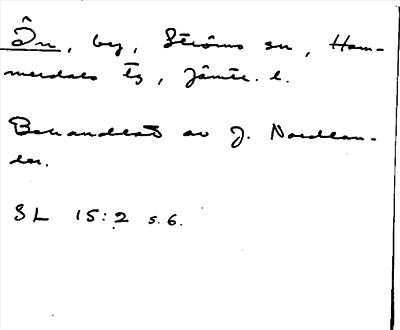 Ôn, by, Ströms sn, Ham-
merdals tg, Jämtl. l.
Behandlat av J. Nordlan-
der.
SL 15:2 s. 6.